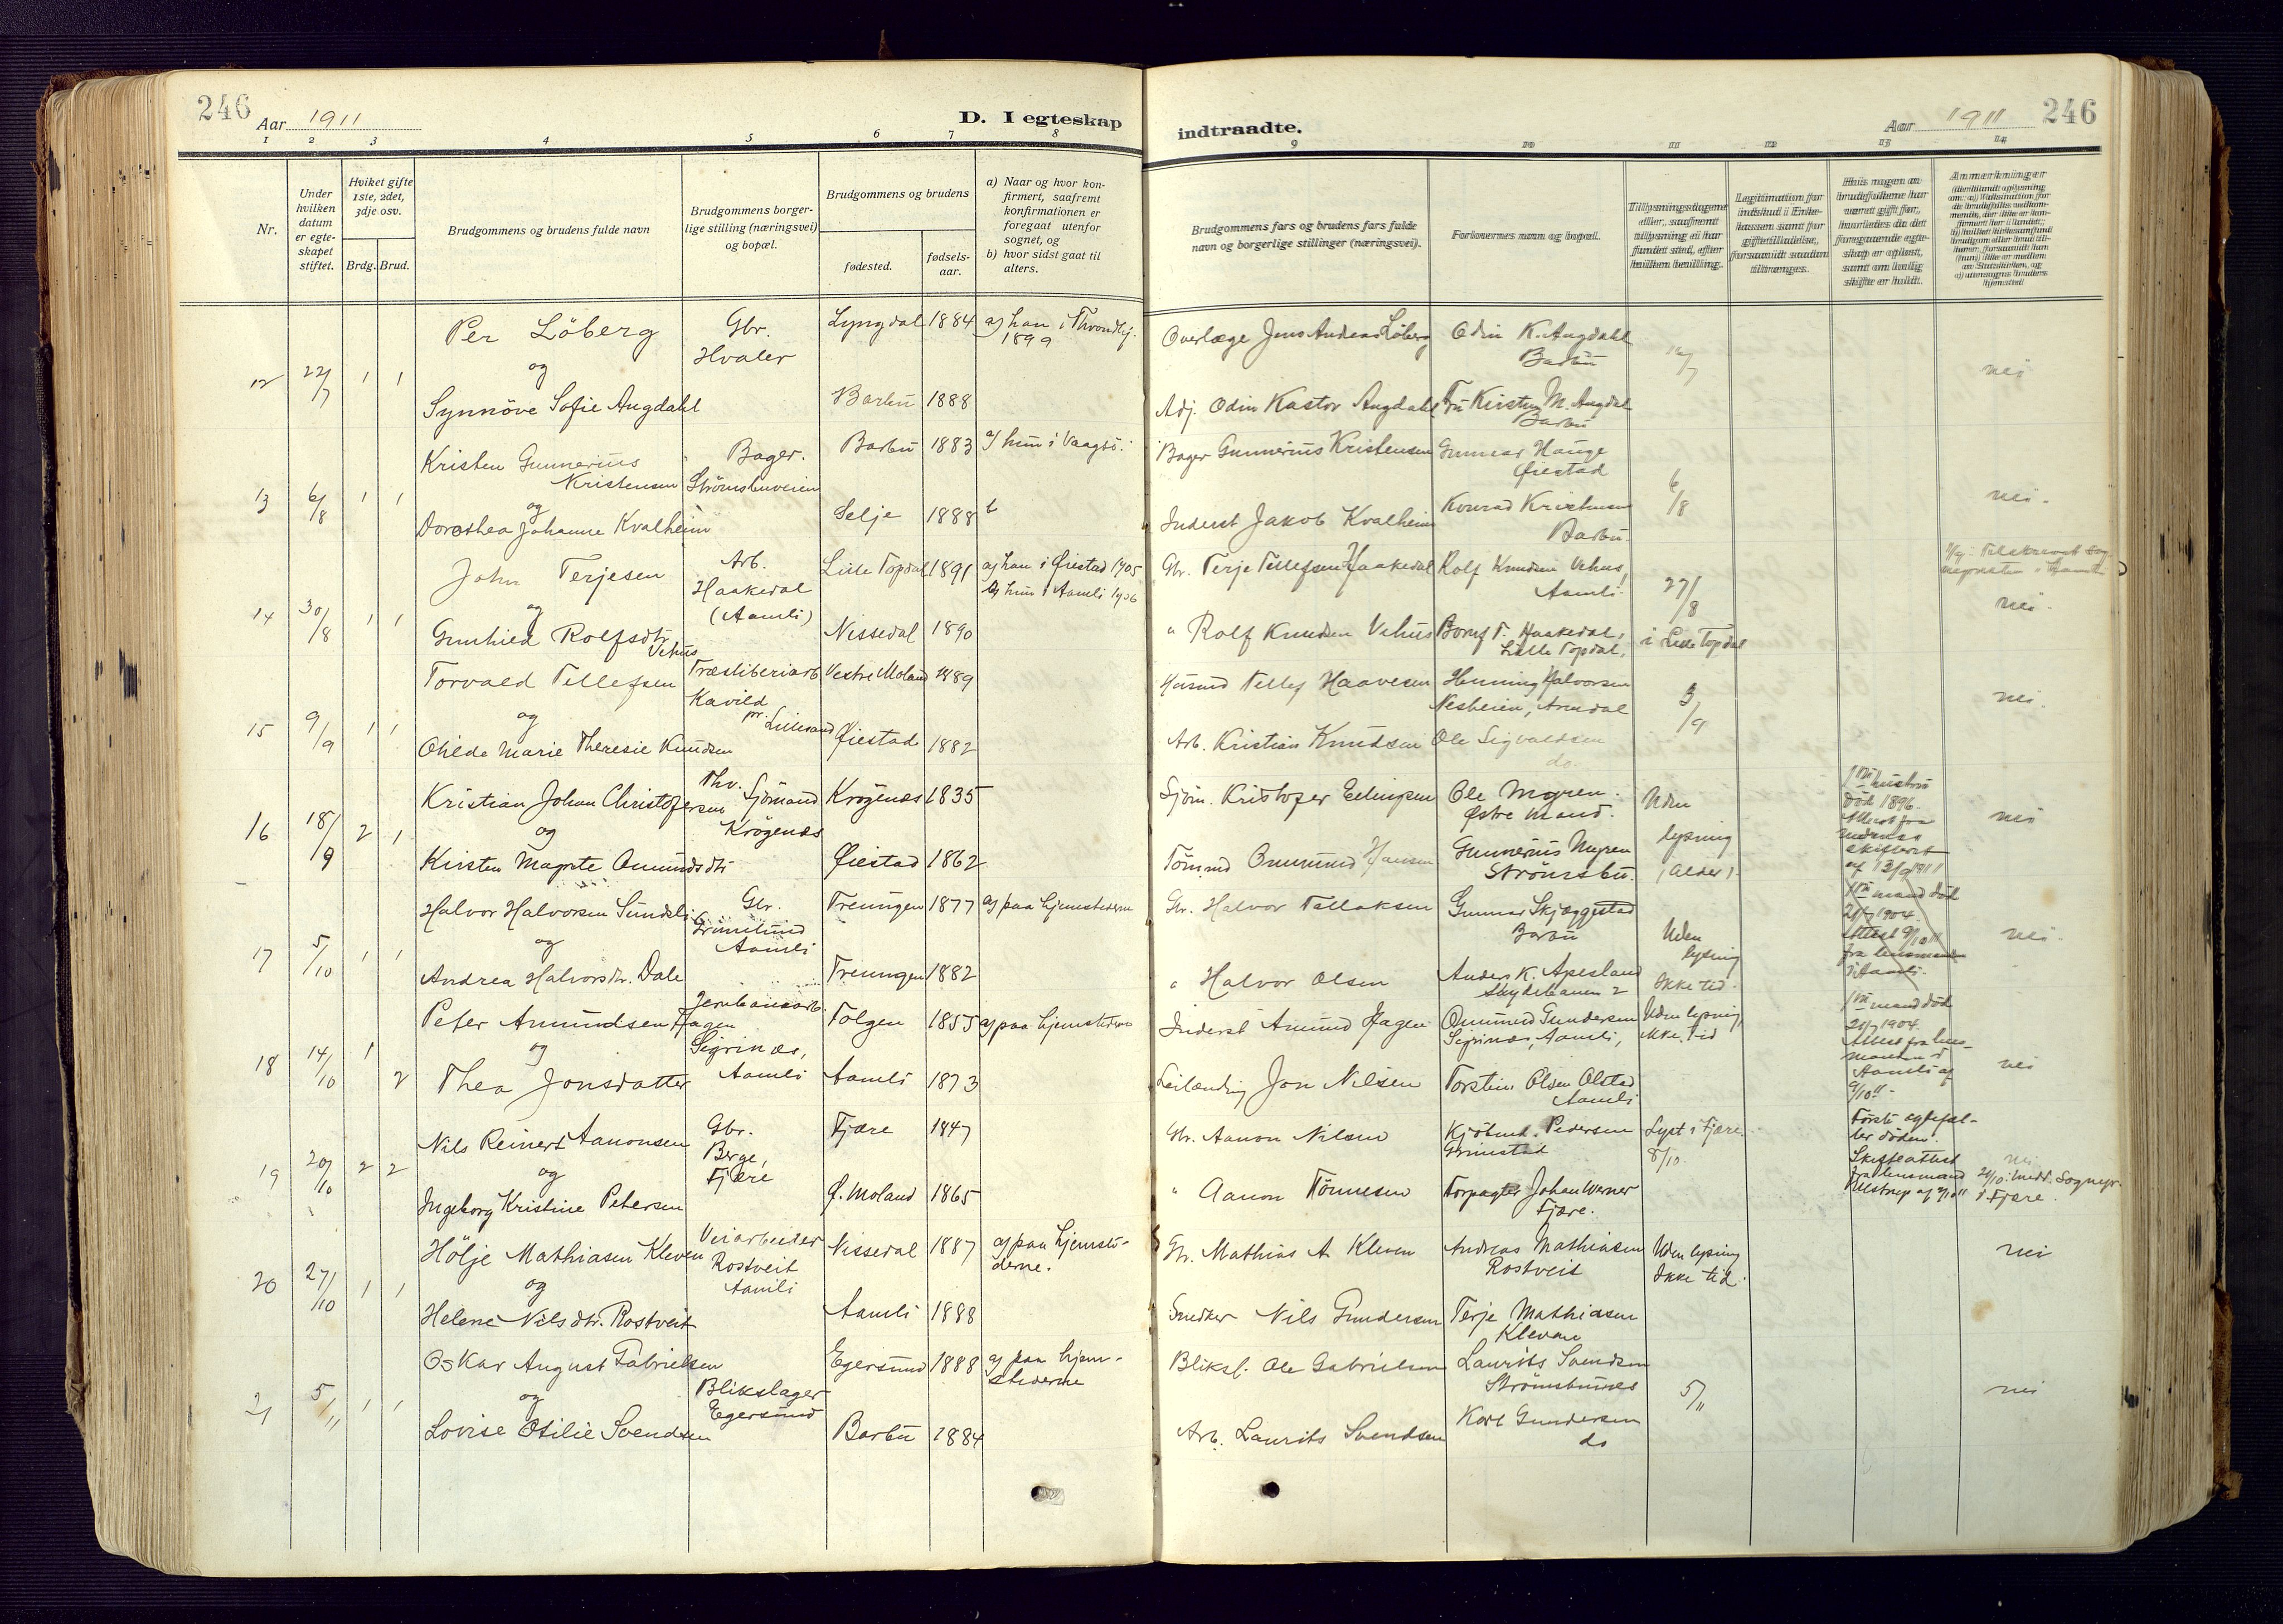 246
Aar 1911
D. I egteskap
indtraadte.
Aar 1911
246
1 2 3 4 5 6 7 8 9 10 11 12 13 14
Nr.
Under hvilken datum er egteskapet stiftet.
Hviket gifte 1ste, 2det, 3dje osv.
Brdg. Brud.
Brudgommens og brudens fulde navn
Brudgommens borgerlige stilling (næringsvei) og bopæl.
Brudgommens og brudens
fødested.
fødselsaar.
a) Naar og hvor konfirmert, saafremt konfirmationen er foregaat utenfor sognet, og
b) hvor sidst gaat til alters.
Brudgommens fars og brudens fars fulde navn og borgerlige stillinger (næringsvei).
Forlovernes navn og bopæl.
Tillysningsdagene eller, saafremt tillysning ei har fundet sted, efter hvilken bevilling.
Legitimation for indskud i Enkekassen samt for giftetilladelse, forsaavidt saadan tiltrænges.
Hvis nogen av brudefolkene har været gift før, hvorledes da det foregaaende egteskap er opløst, samt om lovlig skifte er holdt.
Anmerkninger
12 22/7 1 1
Per Löberg
og
Synnöve Sofie Augdahl
Gbr.
Hvaler
Lyngdal 1884
Barbu 1888
a) han i Throndhj.
1899
Overlæge Jens Andreas Löberg
Adj. Odin Kastor Augdahl
Odin K. Augdahl
Barbu
Fru Kirsten M. Augdal
Barbu
nei
13 6/8 1 1
Kristen Gunnerius
Kristensen
og
Dorothea Johanne Kvalheim
Bager.
Strömsbuveien
Barbu 1883
Selje 1888
a) hun i Vaagsö.
Bager Gunnerius Kristensen
Inderst Jakob Kvalheim
Gunnar Hauge
Øiestad
Konrad Kristensen
Barbu.
6/8
nei.
14 30/8 1 1
John Terjesen
og
Gunhild Rolfsdtr.
Vehus
Arb.
Haakedal
(Aamli)
Lille Topdal 1891
Nissedal 1890
a) han i Øiestad 1905
a) hun i Aamli 1906
Gbr. Terje Tellefsen Haakedal
" Rolf Knudsen Vehus
Rolf Knudsen Vehus,
Aamli.
T. Haakedal,
Lille Topdal.
27/8
i Lille Topdal
nei.
15 9/9 1 1
Torvald Tellefsen
og
Olilde Marie Theresie Knudsen
Træsliberiarb.
Kavild
pr. Lillesand
Vestre Moland 1889
Øiestad 1882
Husmd Tellef Haavesen
Arb. Kristian Knudsen
Henning Halvorsen
Nesheien, Arendal
Ole Sigvaldsen
do.
3/9
nei.
16 18/9 2 1
Kristian Johan Christofersen
og
Kirsten Magrete Omundsdtr
Fhv. Sjömand
Krögenæs
Krögenæs 1835
Øiestad 1862
Sjöm. Kristofer Ellingsen
Tömmd Omund Hansen
Ole Myren.
Gunnerius Myren
Strömsbu.
Uden
lysning
(Alder).
1ste hustru
död 1896.
Attest fra
Nedenes
skifteret
af 13/9 1911
nei
17 5/10 1 1
Halvor Halvorsen Sundsli
og
Andrea Halvorsdtr. Dale
Gbr.
Grimelund
Aamli
Treungen 1877
Treungen 1882
a) paa hjemstederne
Gbr. Halvor Tellaksen
" Halvor Olsen
Gunnar Skjæggestad
Barbu
Anders K. Apesland
Skydebanen 2
Uden
lysning
Ikke tid.
1ste mand död
21/7 1904.
Attest 9/10 11
fra lensmanden
i Aamli.
nei.
18 14/10 1 2
Peter Amundsen Hagen
og
Thea Jonsdatter
Jernbanearb.
Sigrinæs,
Aamli
Tolgen 1855
Aamli 1873
a) paa hjemstederne
Inderst Amund Hagen
Leilænding Jon Nilsen
Omund Gundersen
Sigrinæs, Aamli,
Torstein Olsen Olstad
Aamli
Uden lysning,
ikke tid
1ste mand död
21/7 1904.
Attest fra lensmanden i
Aamli af
9/10 11.
nei
19 20/10 2 2
Nils Reinert Aanonsen
og
Ingeborg Kristine Petersen
Gbr.
Berge,
Fjære
Fjære 1847
Ø. Moland 1865
Gbr. Aanon Nilsen
" Aanon Tönnesen
Kjöbmd. Pedersen
Grimstad
Forpagter Johan Werner
Fjære.
Lyst i Fjære.
8/10.
Förste egtefæller döden.
Skifteattest
fra lensmand
Ulstrup af 9/10 11
nei
21/10 medd. Sognepr.
i Fjære.
20 27/10 1 1
Hölje Mathiasen Kleven
og
Helene Nilsdtr. Rostveit
Veiarbeider
Rostveit
Aamli
Nissedal 1887
Aamli 1888
a) paa hjemstederne.
Gbr. Mathias A. Kleven
Snedker Nils Gundersen
Andreas Mathiasen
Rostveit
Terje Mathiasen
Klevan
Uden lysning
Ikke tid.
nei
21 5/11 1 1
Oskar August Gabrielsen
og
Lovise Otilie Svendsen
Blikslager
Egersund
Egersund 1888
Barbu 1884
a) paa hjemstederne
Bliksl. Ole Gabrielsen
Arb. Laurits Svendsen
Laurits Svendsen
Strömsbunes
Karl Gundersen
do
5/11
nei